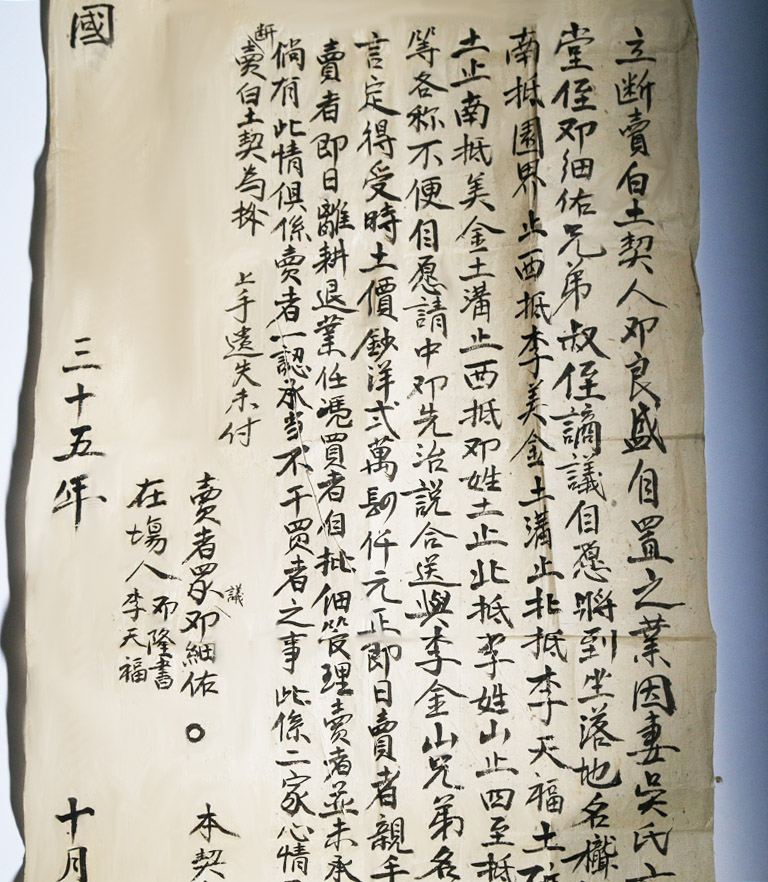 立断賣白土契人邓良盛自置之業因妻吳氏
堂侄邓細佑兄弟叔侄謪議自愿將到坐落地名
南抵園界止西抵李美金土溝止北抵李天福土
土止南抵美金土溝止西抵邓姓土止北抵李姓山止四至抵
等各称不便自愿請中邓先治説合送與李金山兄弟名
言定得受時土價鈔洋弍萬仟元正即日賣者親手
賣者即日離耕退業任凴買者自批佃管理賣者並未承
倘有此情俱係賣者一認承当不干買者之事此係二家心情
断賣白土契為挬
上手遺失未付
賣者眾議邓細佑
本契
在塲人邓隆書
李天福
國
三十五年
十月